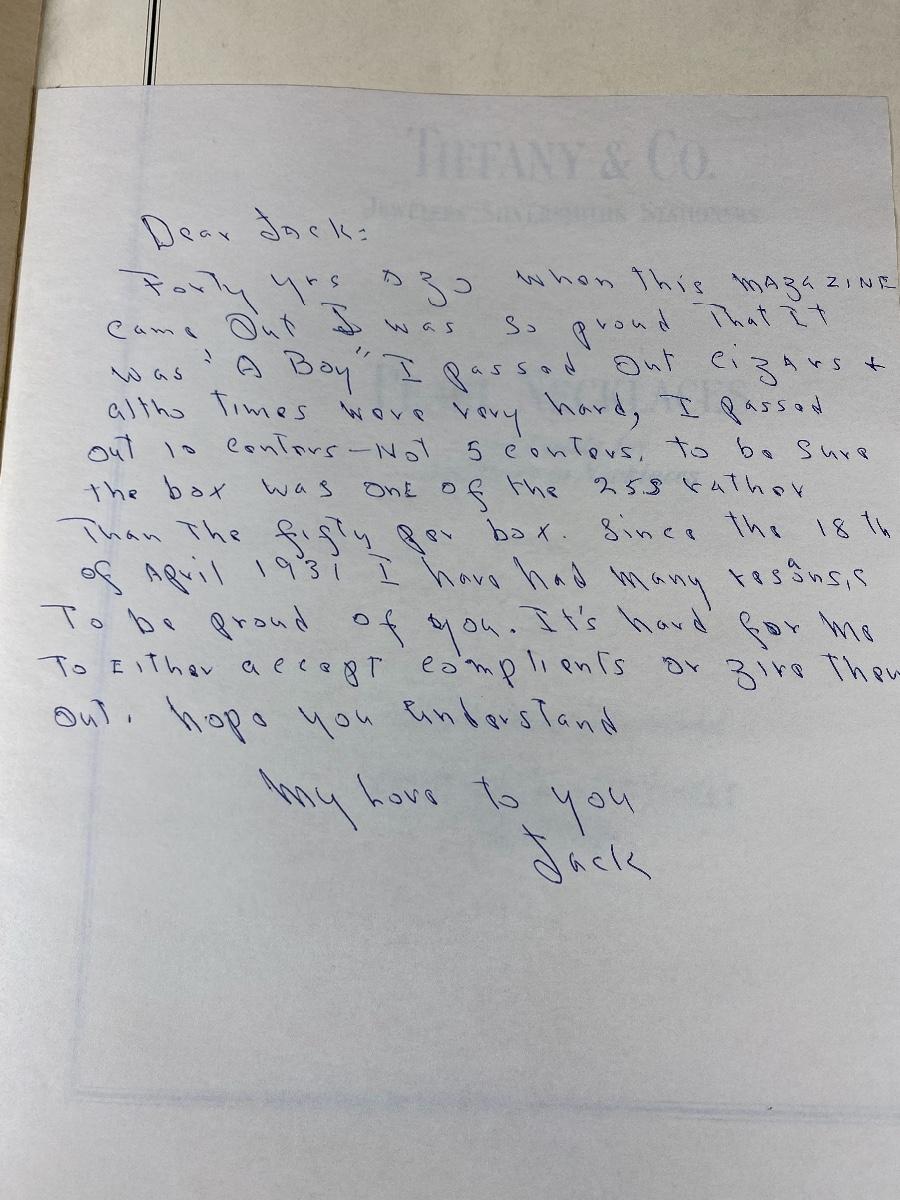 TIFFANY & CO.
JEWELERS SILVERSMITHS STATIONERS
Dear Jack:
Forty yrs ago when this MAgaZINE
came Out I was so proud That It
was "A Boy" I passed Out cigArs +
altho Times were very hard, I passed
out 10 centers - Not 5 centers. To be Sure
the box was ONE of the 25s rather
Than The fifty per box. Since the 18th
of April 1931 I have had many
To be proud of you. It's hard for me
To Either accept complients or give Them
Out. hope you understand
My Love to you
Jack